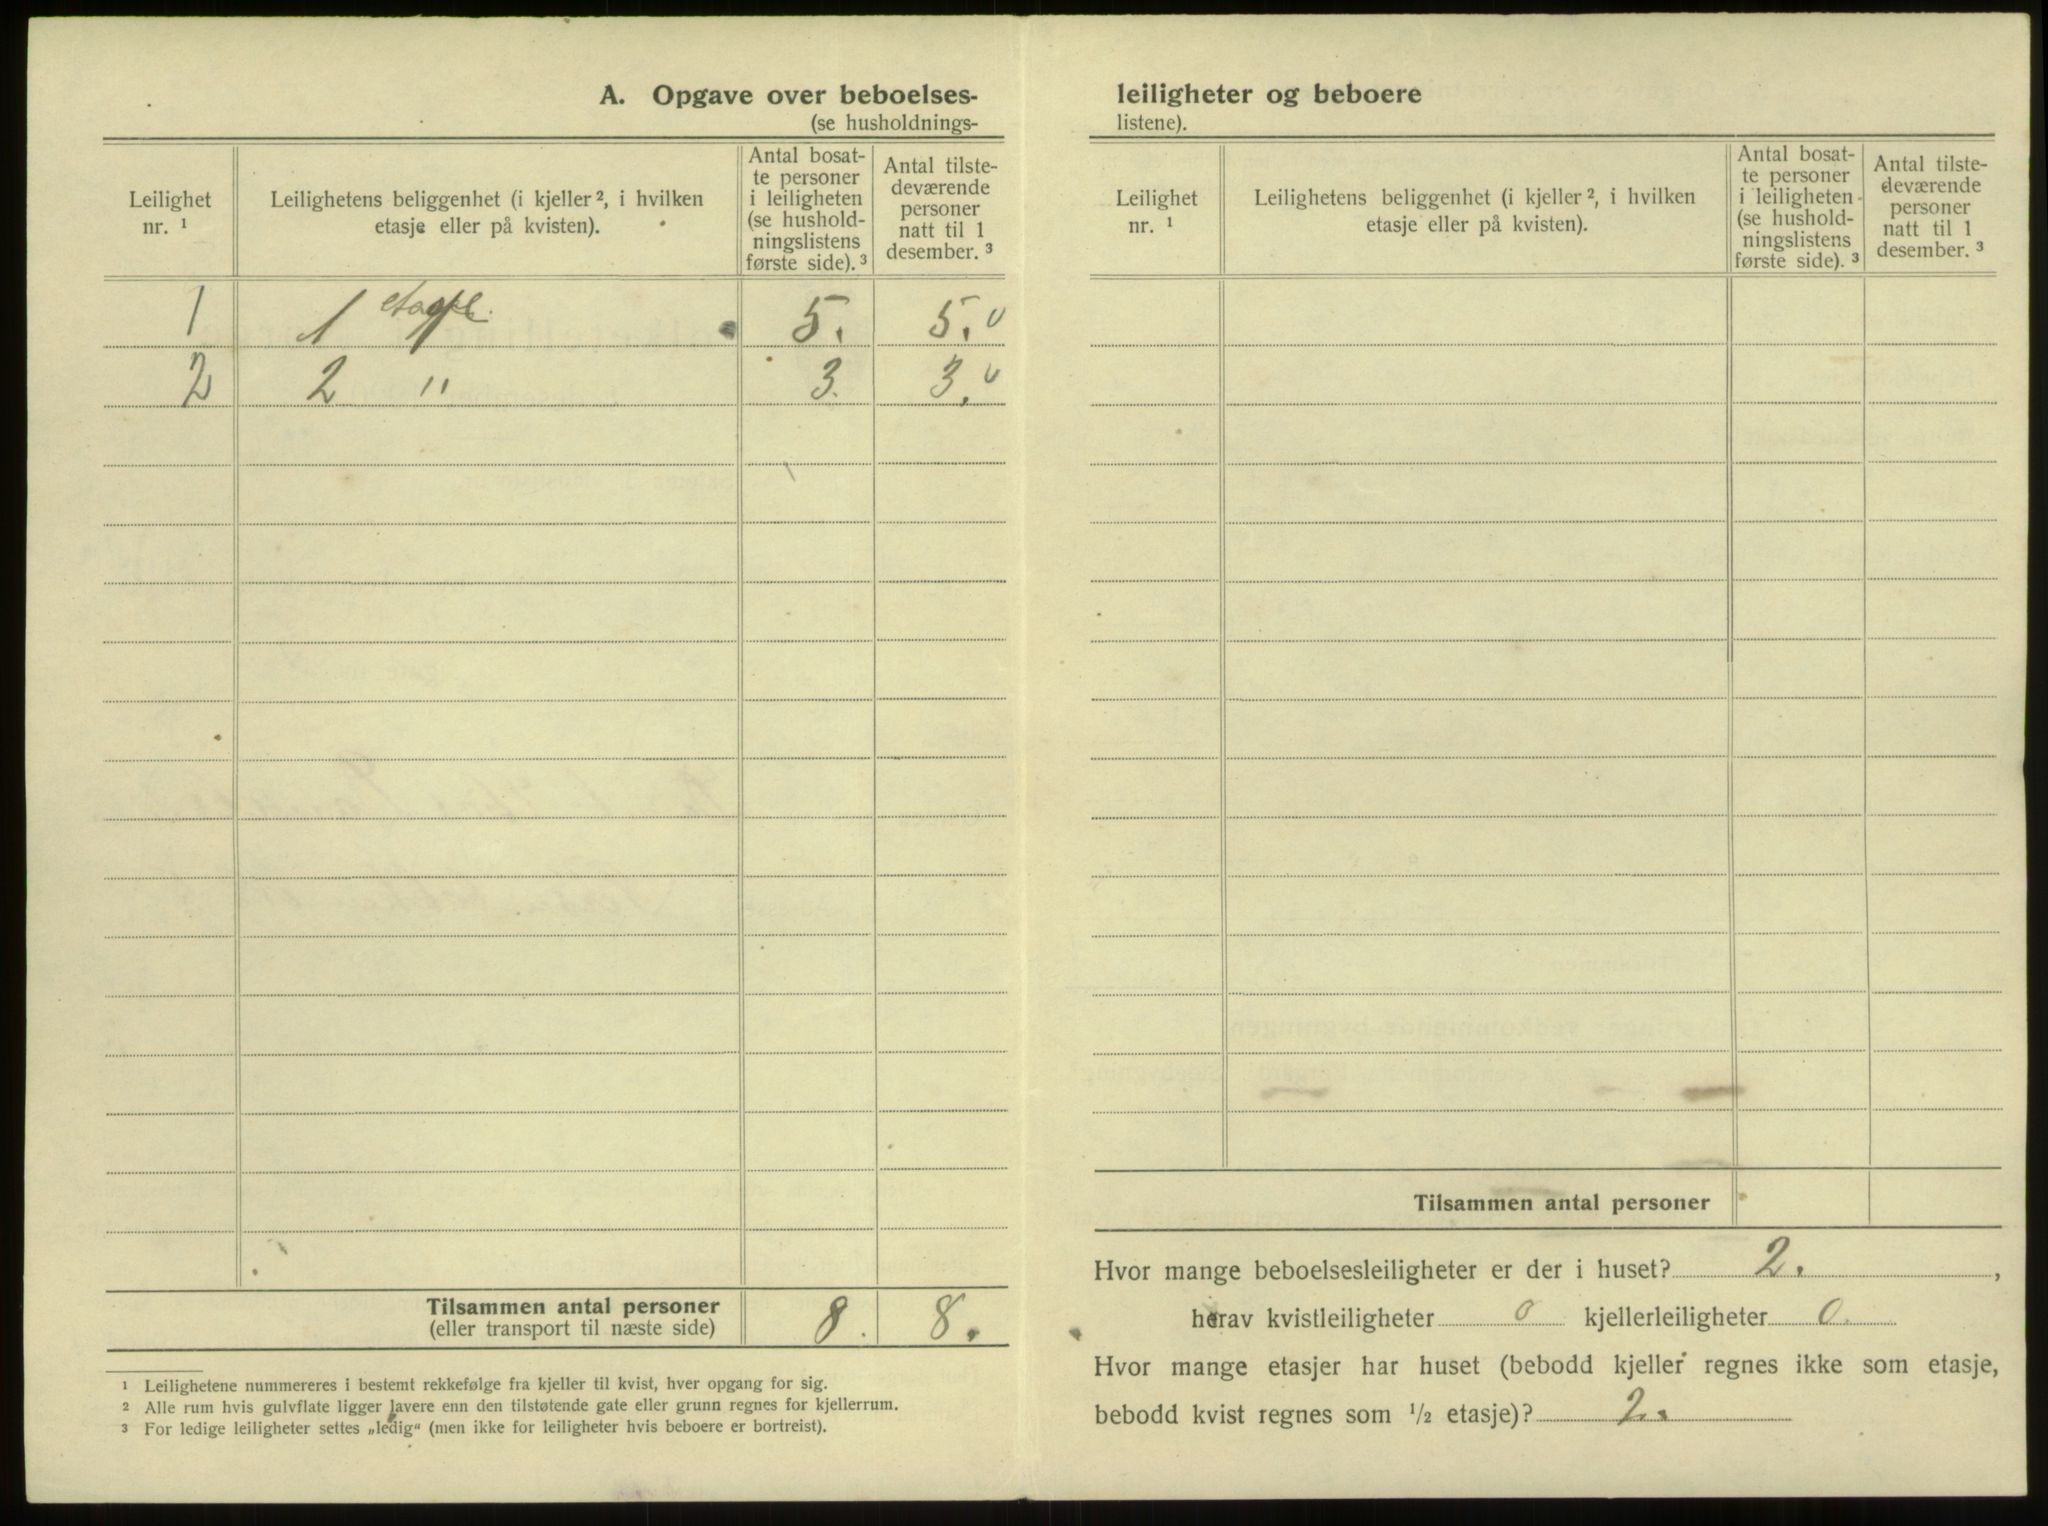 A. Opgave over beboelses-
(se husholdnings-
Leilighet nr. ¹
Leilighetens beliggenhet (i kjeller ², i hvilken
etasje eller på kvisten).
Antal bosat-
te personer
i leiligheten
(se hushold-
ningslistens
første side). ³
Antal tilste-
deværende
personer
natt til 1
desember. ³
1 1 etasje 5. 5.
2 2 " 3. 3.
Tilsammen antal personer 8. 8.
(eller transport til næste side)
¹ Leilighetene nummereres i bestemt rekkefølge fra kjeller til kvist, hver opgang for sig.
² Alle rum hvis gulvflate ligger lavere enn den tilstøtende gate eller grunn regnes for kjellerrum.
³ For ledige leiligheter settes „ledig“ (men ikke for leiligheter hvis beboere er bortreist).
leiligheter og beboere
listene).
Leilighet
nr. ¹
Leilighetens beliggenhet (i kjeller ², i hvilken
etasje eller på kvisten).
Antal bosat-
te personer
i leiligheten
(se hushold-
ningslistens
første side). ³
Antal tilste-
deværende
personer
natt til 1
desember. ³
Tilsammen antal personer
Hvor mange beboelsesleiligheter er der i huset? 2. ,
herav kvistleiligheter 0 kjellerleiligheter 0.
Hvor mange etasjer har huset (bebodd kjeller regnes ikke som etasje,
bebodd kvist regnes som ½ etasje)? 2.